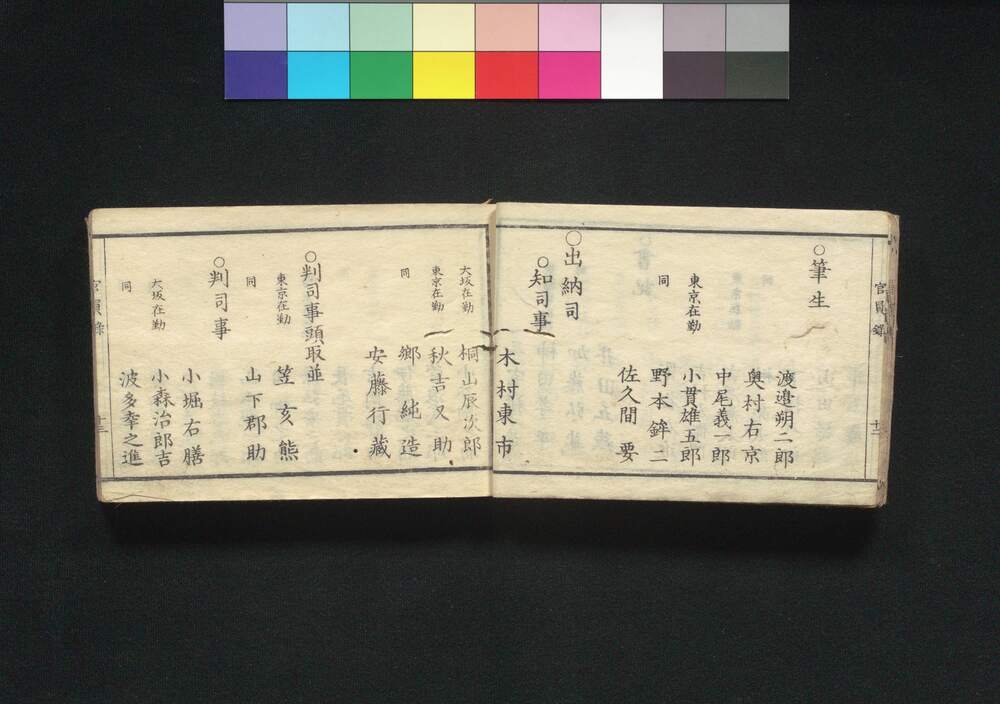 官員錄
十二
○筆生
渡邉朔二郎
奥村右京
中尾義一郎
東京在勤 小貫雄五郎
同 野本鉾二
佐久間要
○出納司
○知司事
木村東市
大坂在勤 桐山辰次郎
東京在勤 秋吉又助
同 鄉純造
安藤行藏
○判司事頭取並
東京在勤 笠亥熊
同 山下郡助
○判司事
小堀右膳
大坂在勤 小森治郎吉
同 波多幸之進
官員錄
十三